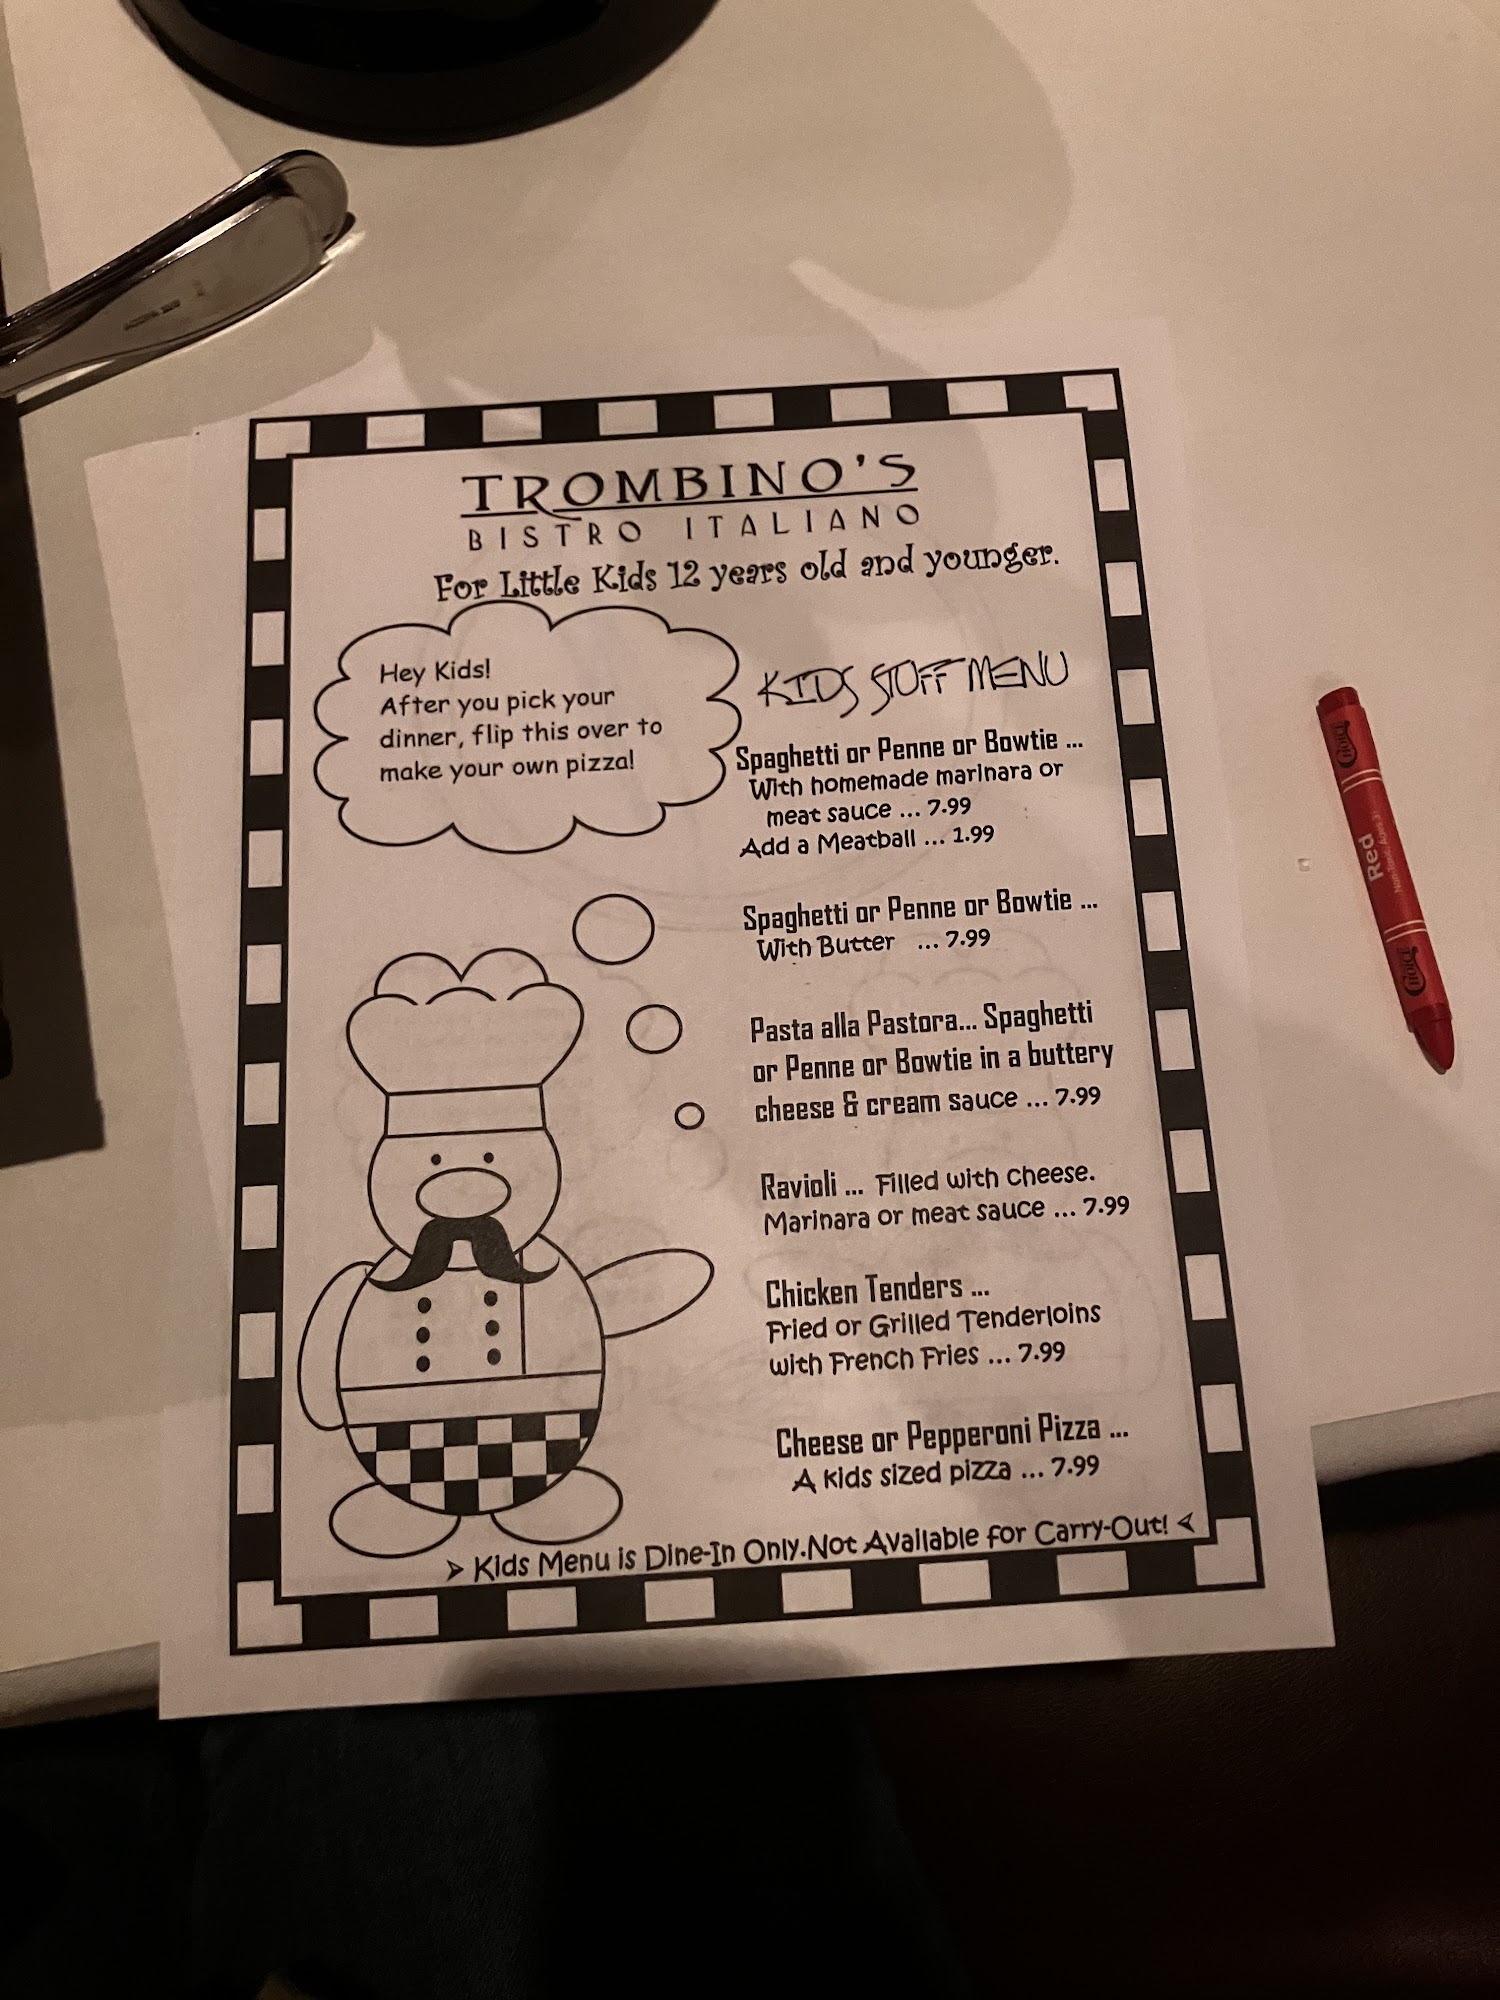 TROMBINO'S
BISTRO ITALIANO
For Little Kids 12 years old and younger.
Hey Kids!
After you pick your
dinner, flip this over to
make your own pizza!
KIDS STUFF MENU
Spaghetti or Penne or Bowtie ...
With homemade marinara or
meat sauce ... 7.99
Add a Meatball ... 1.99
Spaghetti or Penne or Bowtie ...
With Butter ... 7.99
Pasta alla Pastora... Spaghetti
or Penne or Bowtie in a buttery
cheese & cream sauce ... 7.99
Ravioli ... Filled with cheese.
Marinara or meat sauce ... 7.99
Chicken Tenders ...
Fried or Grilled Tenderloins
with French Fries ... 7.99
Cheese or Pepperoni Pizza ...
A kids sized pizza ... 7.99
➢ Kids Menu is Dine-In Only.Not Available for Carry-Out! ⮘
Choice
Red
Non-Toxic. Ages 3+
Choice